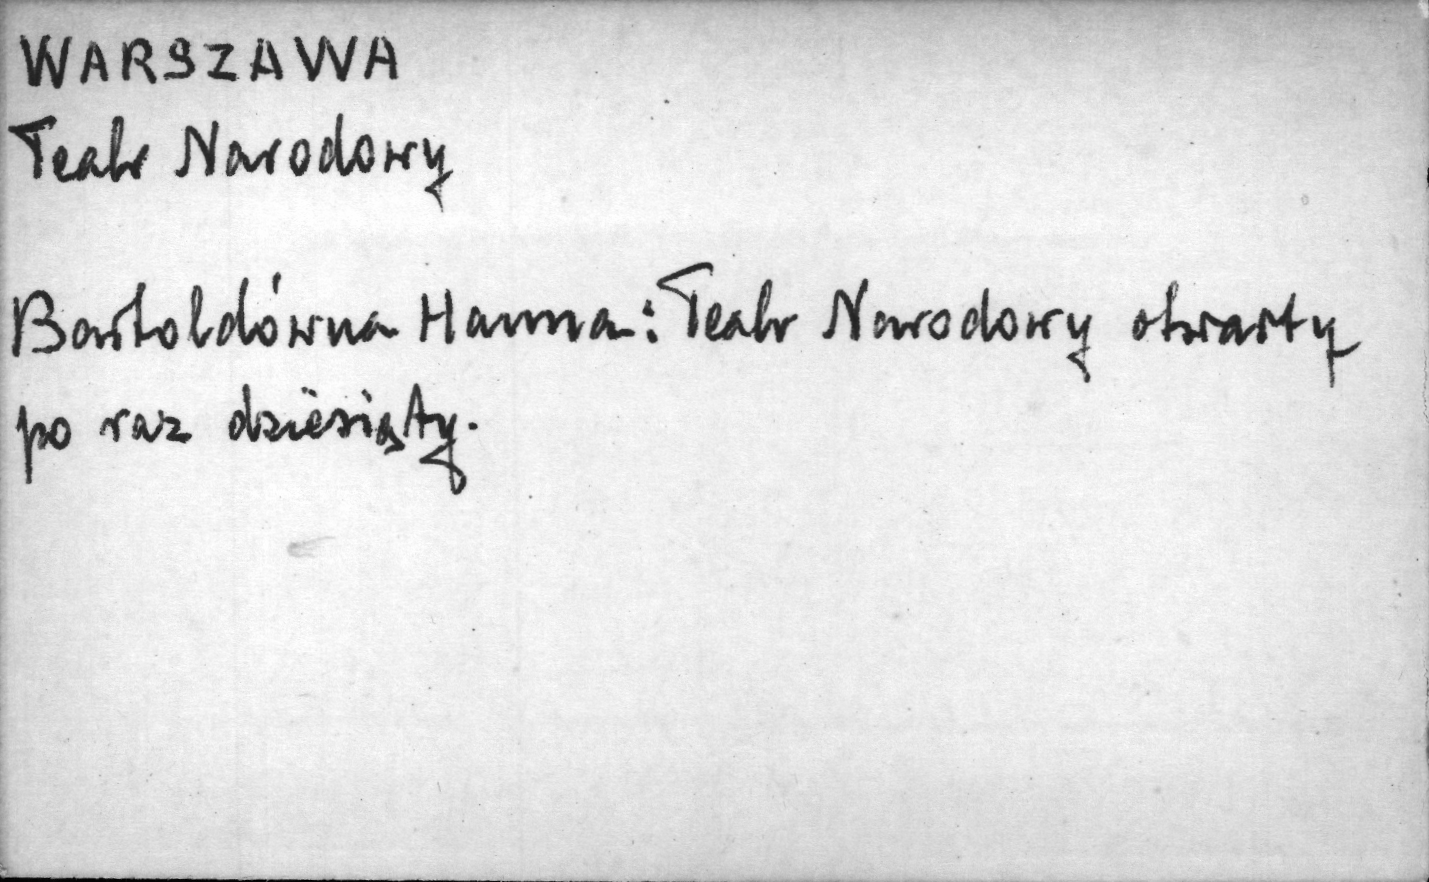 WARSZAWA
Teatr Narodowy
Bartoldówna Hanna: Teatr Narodowy otwarty
po raz dziesiąty.